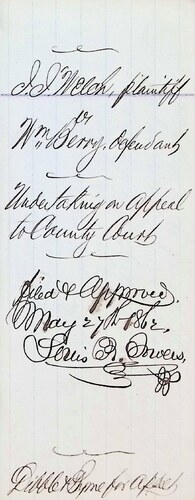 J. J. Welch, plaintiff
vs
Wm. Berry, Defendant
Undertaking on Appeal
to County Court
filed & Approved
May 27th 1862,
Louis R. Lowens
Dibble & Byrne for Applt